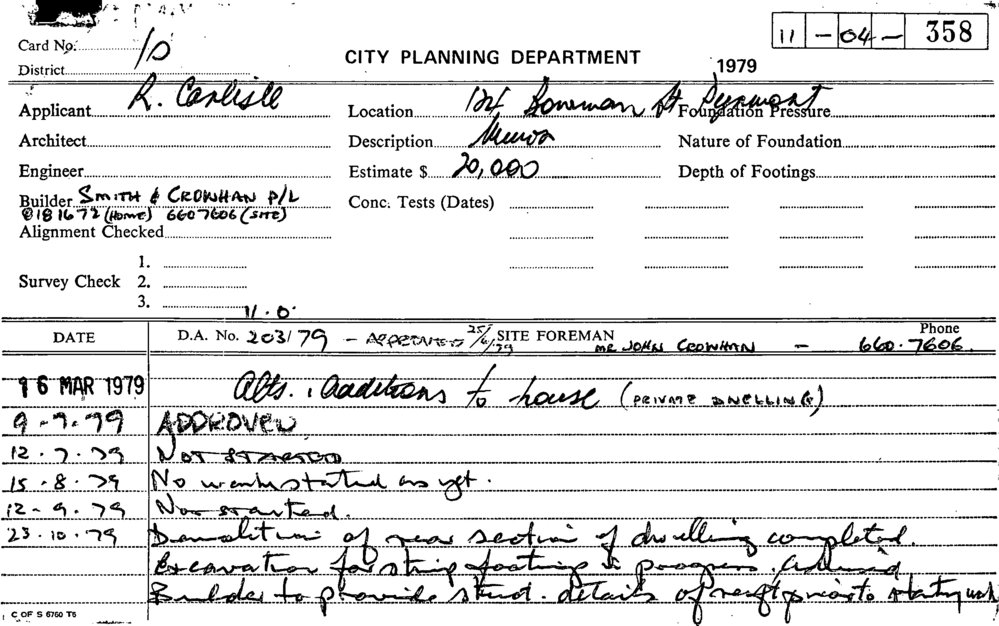 11 - 04 - 358
Card No. 10
CITY PLANNING DEPARTMENT
District
1979
Applicant R. Carlisle Location 124 Bowman St Pyrmont Foundation Pressure
Architect Description Minor Nature of Foundation
Engineer Estimate $ 20,000 Depth of Footings
Builder SMITH & CROWHAN P/L Conc. Tests (Dates)
8181672 (HOME) 6607606 (SITE)
Alignment Checked
1.
Survey Check 2.
3.
11.0
DATE D.A. No. 203/79 - APPROVED 25/6/79 SITE FOREMAN MR JOHN CROWHAN - Phone 660.7606
16 MAR 1979 Alts. & additions to house (PRIVATE DWELLING)
9-7-79 APPROVED
12.7.79 NOT STARTED
15.8.79 No work started as yet.
12-9.79 Not started.
23.10.79 Demolition of rear section of dwelling completed.
Excavation for strip footings in progress. Advised
Builder to provide struct. details of prior to starting work
C OF S 6760 T6